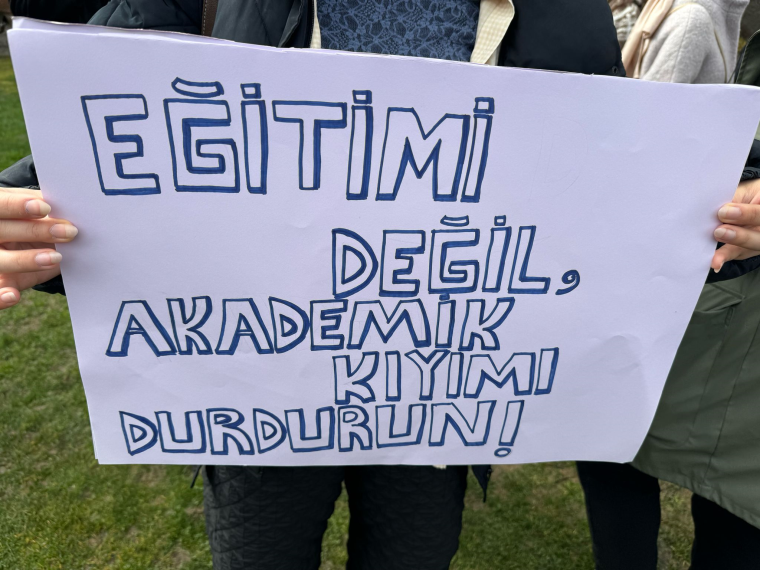 EĞİTİMİ
DEĞİL,
AKADEMİK
KIYIMI
DURDURUN!